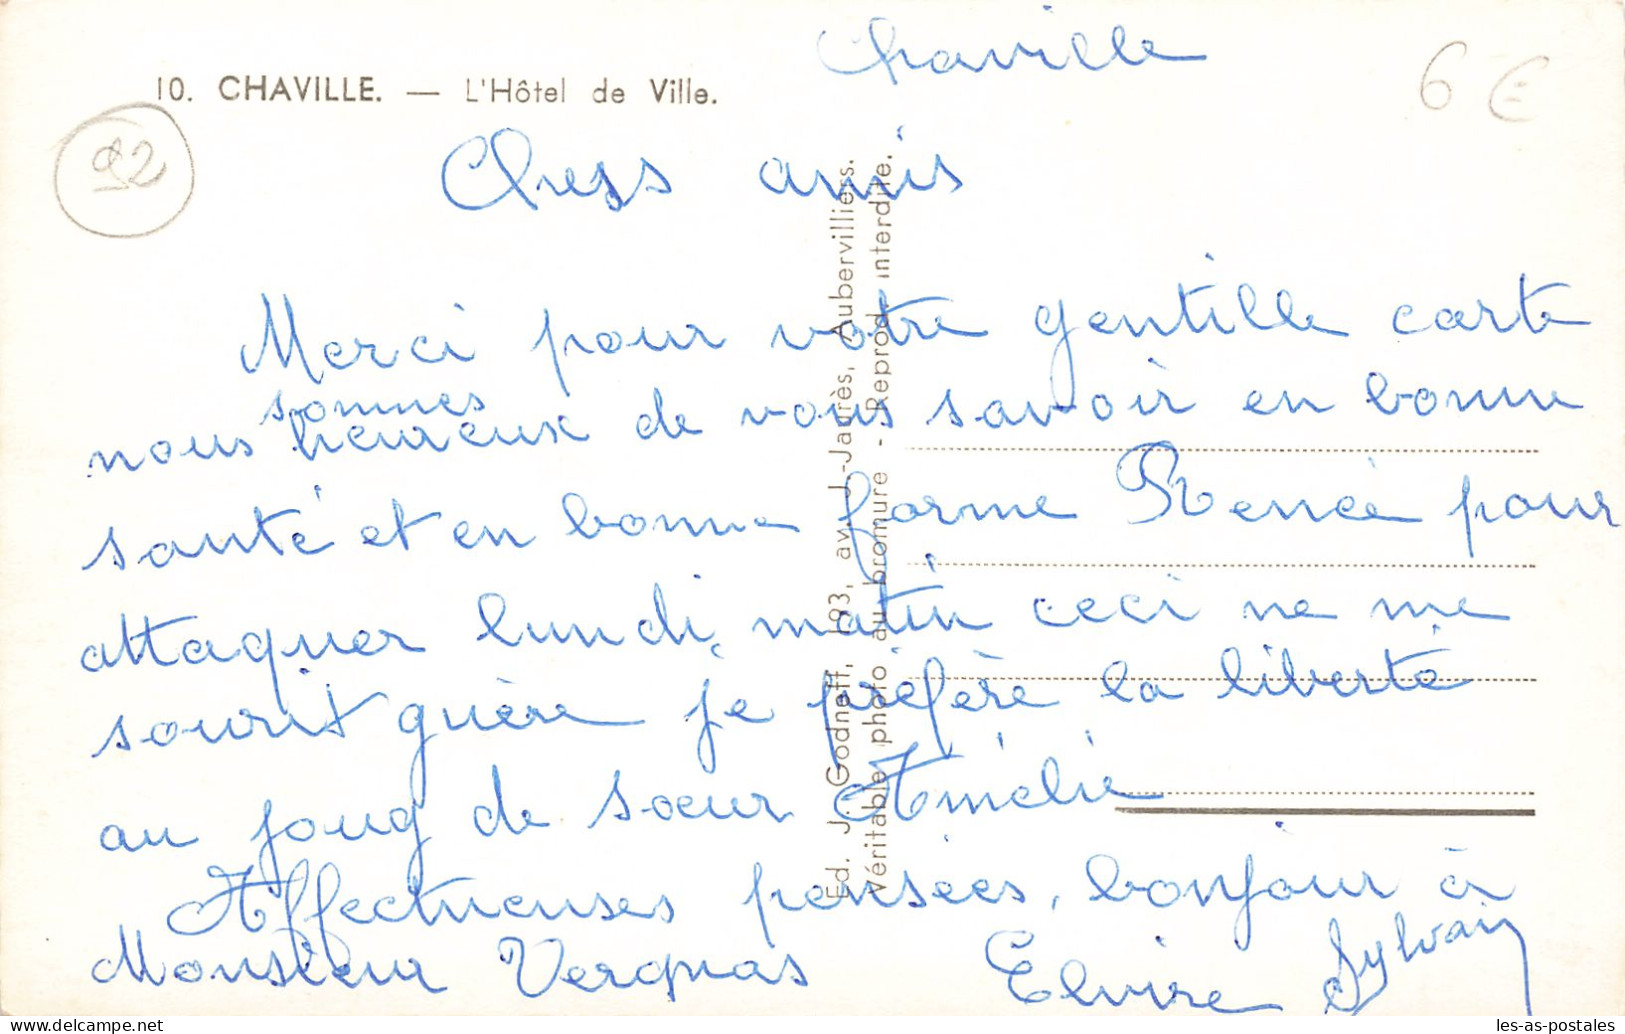 Chaville
6 €
10. CHAVILLE. — L'Hôtel de Ville.
92
Chers amis
Merci pour votre gentille carte
nous sommes heureux de vous savoir en bonne
santé et en bonne forme Renée pour
attaquer lundi matin ceci ne me
sourit guère je préfère la liberté
au joug de sœur Amélie
Affectueuses pensées, bonjour à
Monsieur Vergnas Elvire Sylvain
Éd. J. Godneff, 193, av. J.-Jaurès, Aubervilliers.
Véritable photo au bromure - Reprod. interdite.
les-as-postales